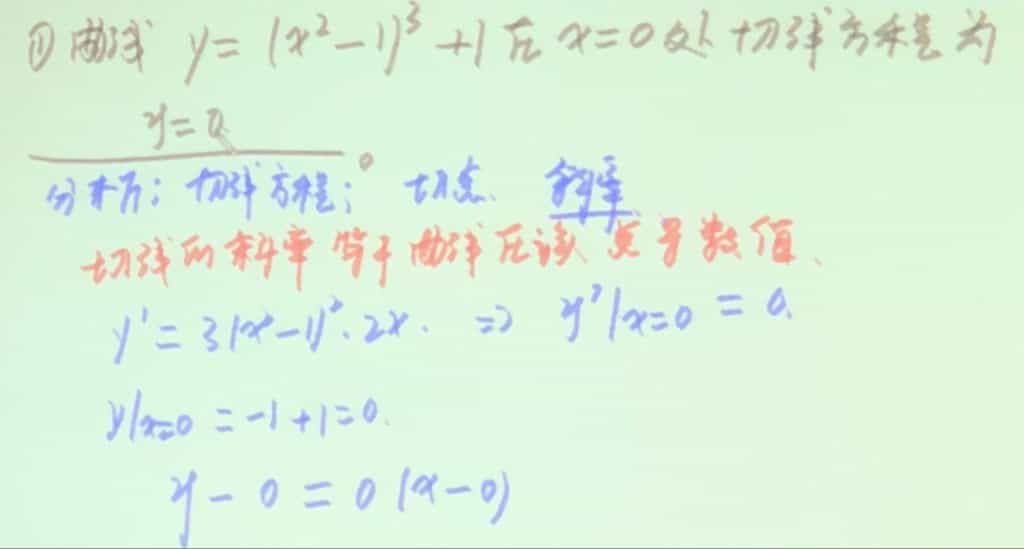 ① 曲线 y=(x²-1)³+1 在 x=0 处切线方程为
y=0。
分析:切线方程:切点、斜率
切线的斜率等于曲线在该点导数值、
y'=3(x²-1)²·2x. ⇒ y'|x=0 = 0.
y|x=0 = -1+1=0.
y-0=0(x-0)